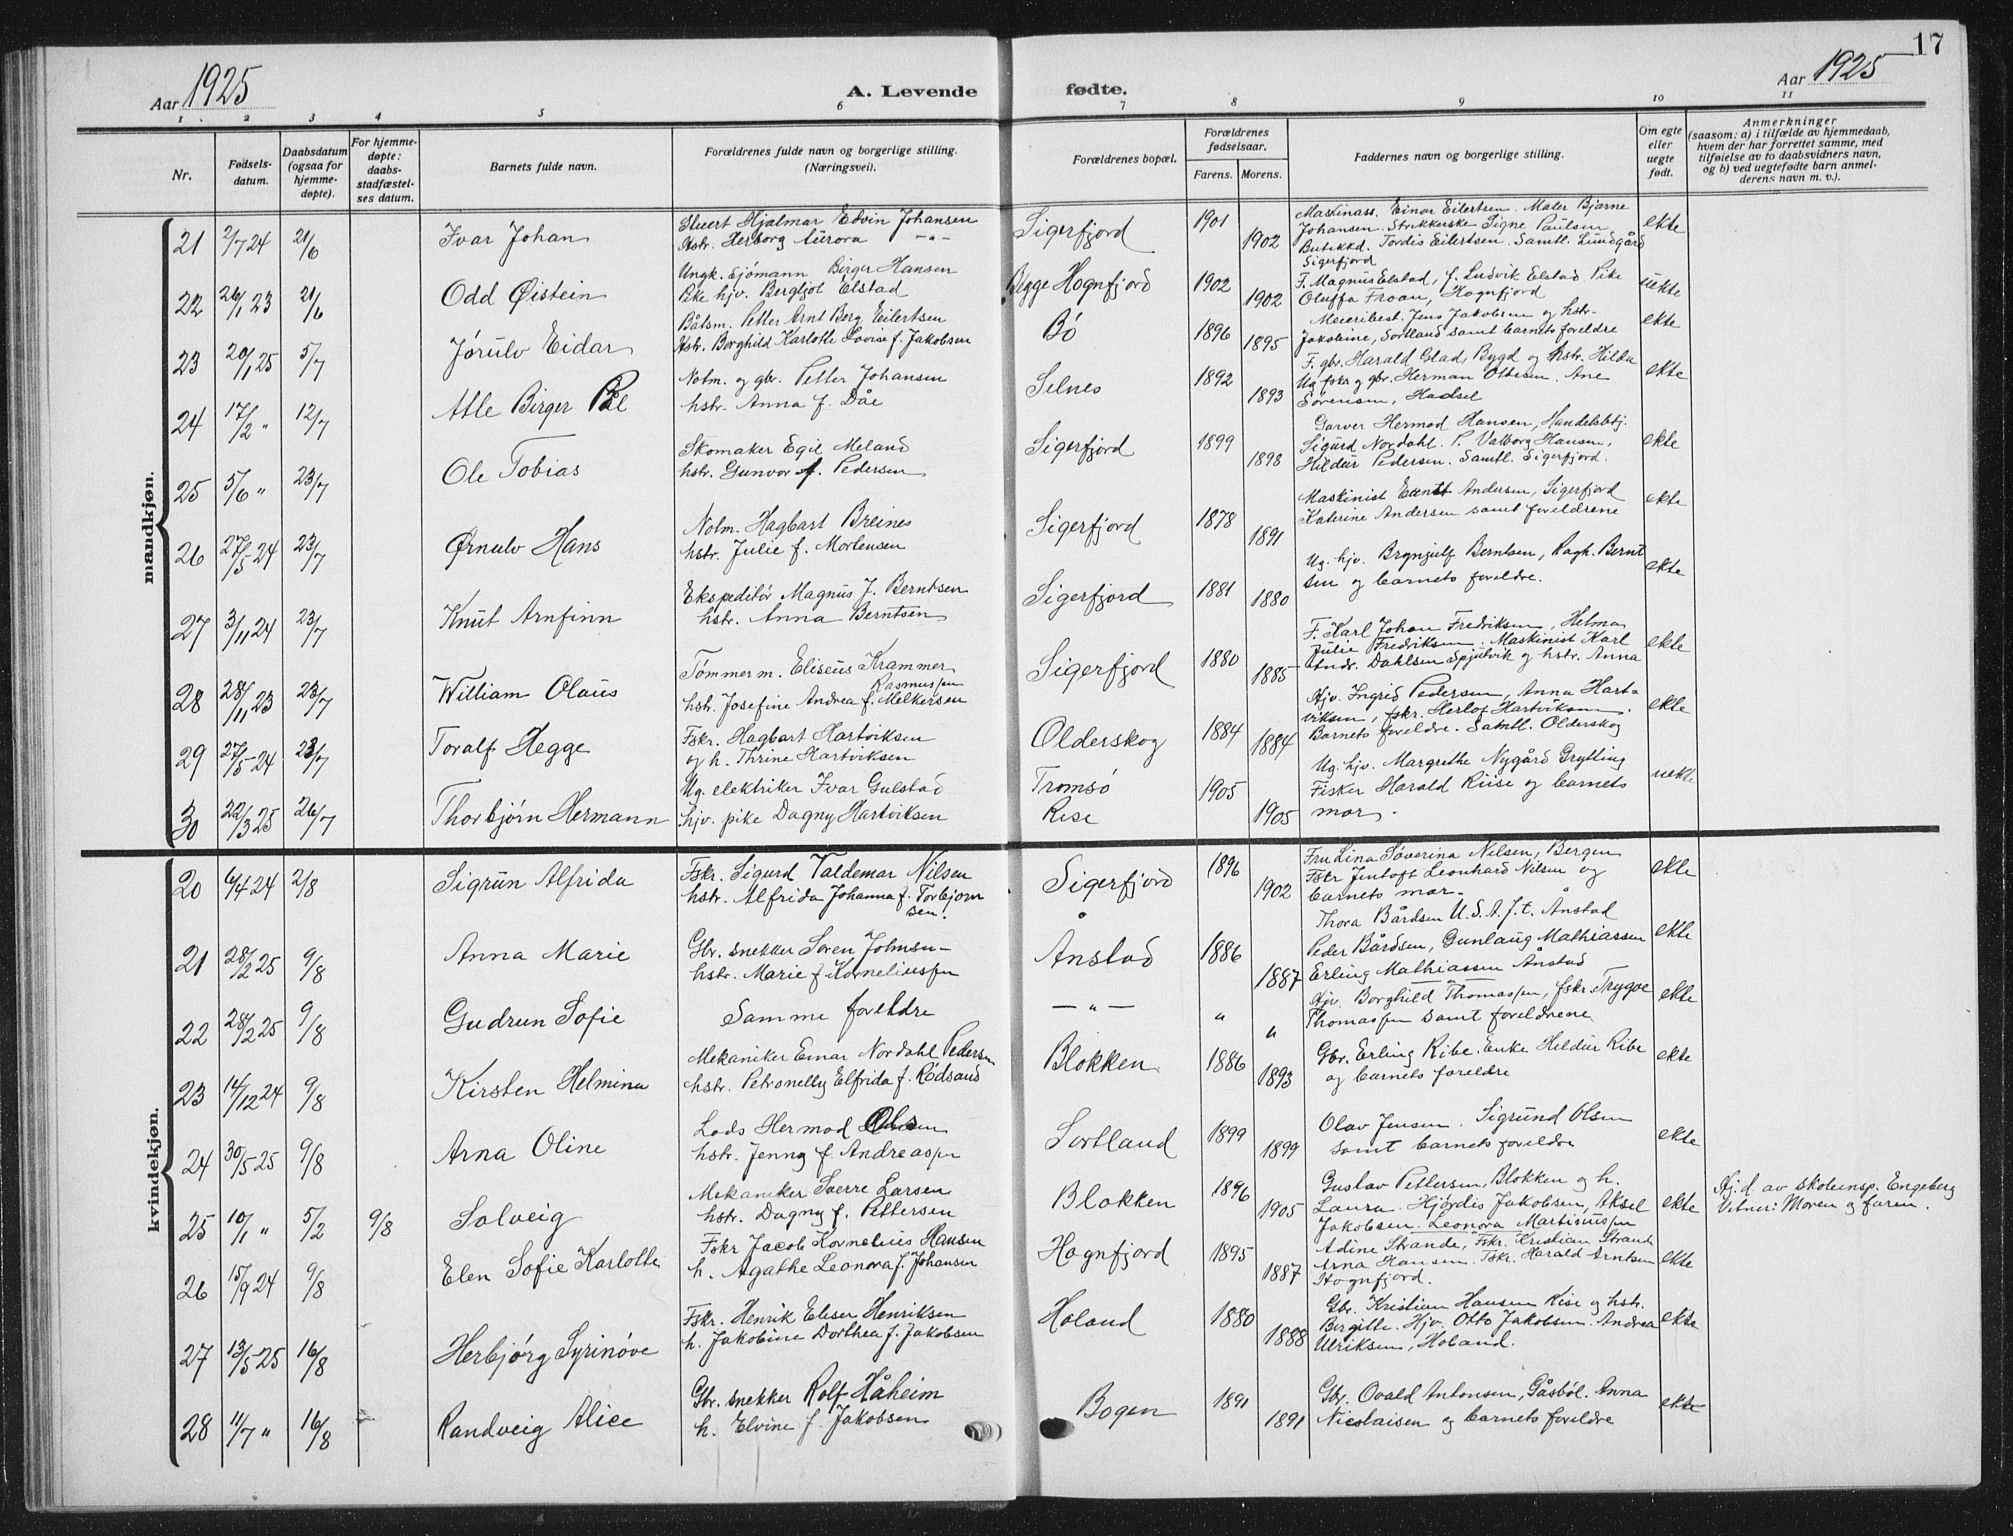 17
Aar 1925
A. Levende fødte.
Aar 1925
1 2 3 4 5 6 7 8 9 10 11
Nr.
Fødsels-
datum.
Daabsdatum
(ogsaa for
hjemme-
døpte).
For hjemme-
døpte:
daabs-
stadfæstel-
ses datum.
Barnets fulde navn.
Forældrenes fulde navn og borgerlige stilling.
(Næringsvei).
Forældrenes bopæl.
Forældrenes
fødselsaar.
Farens. Morens.
Faddernes navn og borgerlige stilling.
Om egte
eller
uegte
født.
Anmerkninger
(saasom: a) i tilfælde av hjemmedaab,
hvem der har forrettet samme, med
tilføielse av to daabsvidners navn,
og b) ved uegtefødte barn anmel-
derens navn m. v.).
mandkjøn.
21 2/7 24 21/6 Ivar Johan
Stuert Hjalmar Edvin Johansen
Hstr. Herborg Aurora —"—
Sigerfjord 1901 1902
Maskinass. Einar Eilertsen. Maler Bjarne
Johansen. Strikkerske Signe Paulsen
Butikkd. Tordis Eilertsen. Samtl. Lundgård
Sigerfjord
ekte
22 26/1 23 21/6 Odd Øistein
Ungk. Sjömann Birger Hansen
Pike hjv. Bergljot Elstad
Bygge Hognfjord 1902 1902
F. Magnus Elstad, f. Ludvik Elstad Pike
Oluffa Froan, Hognfjord
uekte
23 20/1 25 5/7 Jørulv Eidar
Båtsm. Petter Arnt Berg Eilertsen
Hstr. Borghild Karlotte Lovise f. Jakobsen
Bö 1896 1895
Meieribest. Jens Jakobsen og hstr.
Jakobine, Sortland samt barnets foreldre
ekte
24 17/2 " 12/7 Atle Birger Pål
Notm. og gbr. Petter Johansen
hstr. Anna f. Dåe
Selnes 1892 1893
F. gbr. Harald Glad, Bygd og hstr. Hilda
Ug fskr g gbr. Herman Ottesen. Ane
Sörensen, Hadsel
ekte
25 5/6 " 23/7 Ole Tobias
Skomaker Egil Meland
hstr. Gunvor f. Pedersen
Sigerfjord 1899 1898
Garver Hermod Hansen, Handelsbtj.
Sigurd Nordahl. P. Valborg Hansen,
Hildur Pedersen. Samtl. Sigerfjord.
ekte
26 27/5 24 23/7 Ørnulv Hans
Notm. Hagbart Breines
hstr. Julie f. Mortensen
Sigerfjord 1878 1891
Maskinist Andersen, Sigerfjord
Katerine Andersen samt foreldrene
ekte
27 3/11 24 23/7 Knut Arnfinn
Ekspeditör Magnus J. Berntsen
hstr. Anna Berntsen
Sigerfjord 1881 1880
Ug. hjv. Brynjulf Berntsen, Ragh. Bernt
sen og barnets foreldre.
ekte
28 28/11 23 23/7 William Olaus
Tömmerm. Eliseus Krammer
Rasmussen
hstr. Josefine Andrea f. Melkersen
Sigerfjord 1880 1885
F. Karl Johan Fredriksen, Helma
Julie Fredriksen. Maskinist Karl
Andr. Dahlsen Spjutvik og hstr. Anna
ekte
29 27/5 24 23/7 Toralf Hegge
Fskr. Hagbart Hartviksen
og h. Thrine Hartviksen
Olderskog 1884 1884
Hjv. Ingrid Pedersen, Anna Hart-
viksen, fskr. Herlof Hartviksen.
Barnets foreldre. Samtl. Olderskog
ekte
30 22/3 25 26/7 Thorbjørn Hermann
Ug. elektriker Ivar Gulstad
hjv. pike Dagny Hartviksen
Tromsö
Rise 1905 1905
Ug. hjv. Margrethe Nygård Grytting
Fisker Harald Riise og barnets
mor.
uekte
kvindekjøn.
20 6/4 24 2/8 Sigrun Alfrida
Fskr. Sigurd Valdemar Nilsen
hstr. Alfrida Johanna f. Torbjörn
sen.
Sigerfjord 1896 1902
Fru Lina Söverina Nilsen, Bergen
Fskr Jentoft Leonhard Nilsen og
barnets mor.
ekte
21 28/2 25 9/8 Anna Marie
Gbr. snekker Sören Johnsen
hstr. Marie f. Korneliussen
Ånstad 1886 1887
Thora Bårdsen U.S.A. f.t. Ånstad
Peder Bårdsen, Gunlaug Mathiassen
Erling Mathiassen Ånstad
ekte
22 28/2 25 9/8 Gudrun Sofie
Samme foreldre
—"— " "
Hjv. Borghild Thomassen, fskr. Trygve
Thomassen samt foreldrene
ekte
23 14/12 24 9/8 Kirsten Helmina
Mekaniker Einar Nordahl Pedersen
hstr. Petronelly Elfrida f. Rödsand
Blokken 1886 1893
Gbr. Erling Ribe. Enke Hildur Ribe
og barnets foreldre
ekte
24 30/5 25 9/8 Arna Oline
Lods Hermod Olsen
hstr. Jenny f. Andreassen
Sortland 1899 1899
Olav Jensen. Sigrund Olsen
samt barnets foreldre
ekte
25 10/1 " 5/2 9/8 Solveig
Mekaniker Sverre Larsen
hstr. Dagny f. Pettersen
Blokken 1896 1905
Gustav Pettersen, Blokken og h.
Laura. Hjördis Jakobsen, Aksel
Jakobsen. Leonora Martinussen
ekte
Hj. d. av skoleinsp. Engeberg
Vitner: Moren og faren.
26 15/9 24 9/8 Elen Sofie Karlotte
Fskr Jacob Kornelius Hansen
h. Agathe Leonora f. Johansen
Hognfjord 1895 1887
Adine Strande, Fskr. Kristian Strand
Arna Hansen. Fskr. Harald Arntsen
Hognfjord.
ekte
27 13/5 25 16/8 Herbjørg Syrinöve
Fskr. Henrik Eliser Henriksen
h. Jakobine Dorthea f. Jakobsen
Holand 1880 1888
Gbr. Kristian Hansen Rise og hstr.
Bergitte. Hjv. Otto Jakobsen. Andrea
Ulriksen, Holand.
ekte
28 11/7 " 16/8 Randveig Alice
Gbr. snekker Rolf Håheim
h. Elvine f. Jakobsen
Bogen 1891 1891
Gbr. Ovald Antonsen, Gåsböl. Anna
Nicolaisen og barnets foreldre
ekte